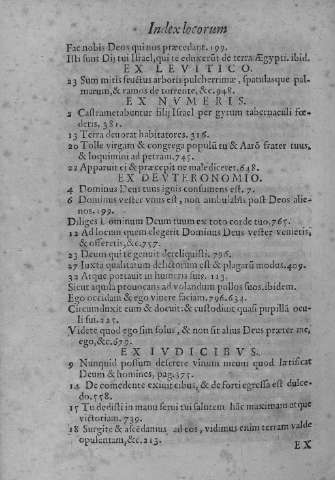 Index locorum
Fac nobis Deos qui nos præcedant. 199.
Isti sunt Dij tui Israel, qui te eduxerũt de terra Ægypti. ibid.
EX LEVITICO.
23 Sum mitis fructus arboris pulcherrimæ, spatulasque pal-
marum, & ramos de torrente, &c. 948.
EX NVMERIS.
2 Castrametabuntur filij Israel per gyrum tabernaculi fœ-
deris. 381.
13 Terra deuorat habitatores. 316.
20 Tolle virgam & congrega populũ tu & Aarõ frater tuus,
& loquimini ad petram. 745.
22 Apparuit ei & præcepit ne malediceret. 648.
EX DEVTERONOMIO.
4 Dominus Deus tuus ignis consumens est. 7.
6 Dominus vester vnus est, non ambulabis post Deos alie-
nos. 199.
Diliges Dominum Deum tuum ex toto corde tuo. 765.
12 Ad locum quem elegerit Dominus Deus vester venietis,
& offeretis, &c. 757.
23 Deum qui te genuit dereliquisti. 796.
27 Iuxta qualitatem delictorum est & plagarũ modus. 409.
32 Atque potauit in humera sunt. 113.
Sicut aquila prouocans ad volandum pullos suos. ibidem.
Ego occidam & ego viuere faciam. 796. 634.
Circumduxit eum & docuit: & custodiuit quasi pupillã ocu-
li sui. 225.
Videte quod ego sim solus, & non sit alius Deus præter me,
ego, &c. 679.
EX IVDICIBVS.
9 Nunquid possum deserere vinum meum quod lætificat
Deum & homines, pag. 375.
14 De comedente exiuit cibus, & de forti egressa est dulce-
do. 558.
15 Tu dedisti in manu serui tui salutem hãc maximam atque
victoriam. 739.
18 Surgite & ascẽdamus ad eos, vidimus enim terram valde
opulentam, &c. 213.
EX